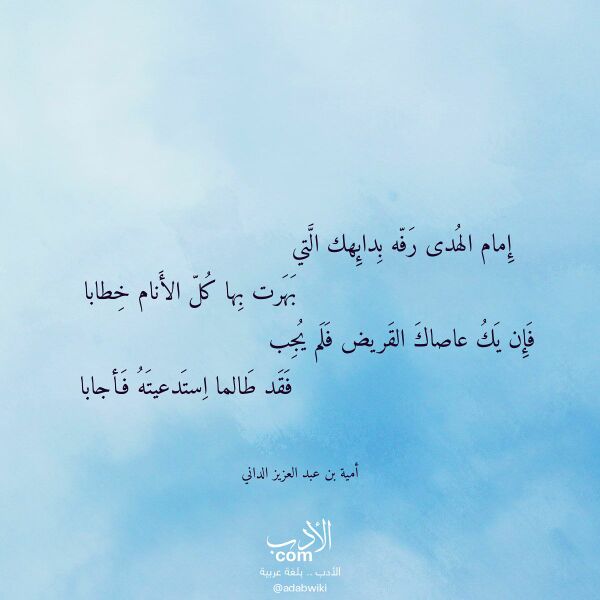 إِمام الهُدى رَفّه بِدايِهك الَّتي
بَهَرت بِها كُلّ الأَنام خِطابا
فَإِن يَكُ عاصاكَ القَريض فَلَم يُجِب
فَقَد طَالما اِستَدعيتَهُ فَأجابا
أمية بن عبد العزيز الداني
الأدب
com
الأدب .. بلغة عربية
@adabwiki